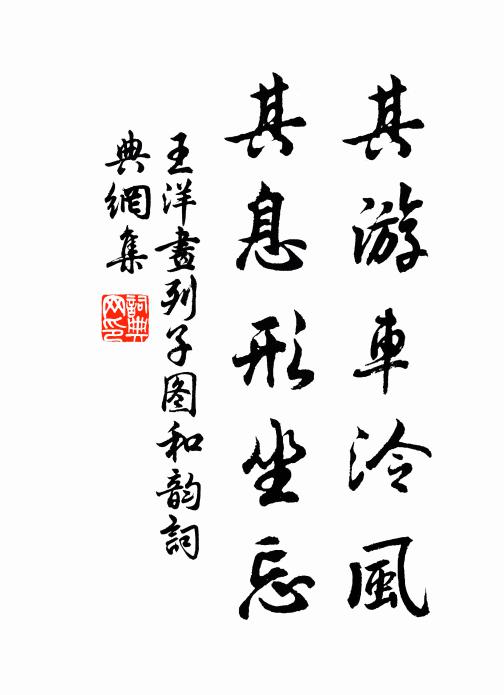 其游車泠風
其息形坐忘
王洋畫列子图和韵詞
典網集
詞典网印